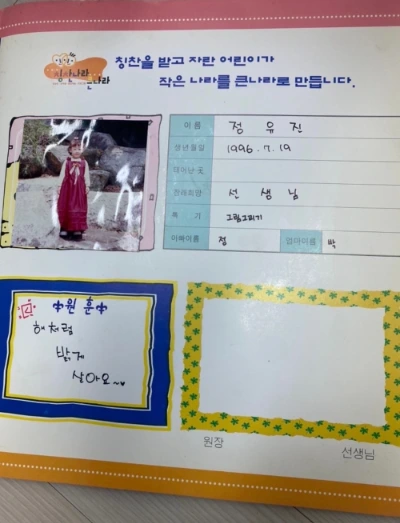 칭찬을 받고 자란 어린이가
작은 나라를 큰나라로 만듭니다.
이 름 정 유 진
생년월일 1996. 7. 19
태어난 곳
장래희망 선 생 님
특 기 그림그리기
아빠이름 정 엄마이름 박
원 훈
해처럼
밝게
살아요~♥
원장
선생님